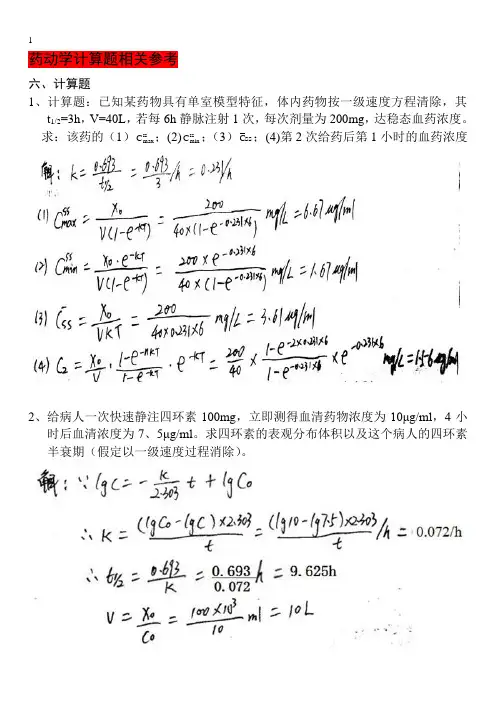 1
药动学计算题相关参考
六、计算题
1、计算题：已知某药物具有单室模型特征，体内药物按一级速度方程清除，其
t1/2=3h，V=40L，若每 6h 静脉注射 1 次，每次剂量为 200mg，达稳态血药浓度。
求：该药的（1）C^ss_max；(2) C^ss_min；（3）C̄ss；(4)第 2 次给药后第 1 小时的血药浓度
解：k = 0.693/t½ = 0.693/3 /h = 0.231/h
(1) C^ss_max = X₀/V(1-e^-kτ) = 200/40×(1-e^-0.231×6) mg/L = 6.67μg/ml
(2) C^ss_min = X₀·e^-kτ/V(1-e^-kτ) = 200×e^-0.231×6/40×(1-e^-0.231×6) mg/L = 1.67μg/ml
(3) C̄ss = X₀/VKτ = 200/40×0.231×6 mg/L = 3.61μg/ml
(4) C₂ = X₀/V · 1-e^-nkτ/1-e^-kτ · e^-kτ = 200/40 × 1-e^-2×0.231×6/1-e^-0.231×6 × e^-0.231×6 mg/L = 1.56μg/ml
2、给病人一次快速静注四环素 100mg，立即测得血清药物浓度为 10μg/ml，4 小
时后血清浓度为 7、5μg/ml。求四环素的表观分布体积以及这个病人的四环素
半衰期（假定以一级速度过程消除）。
解：∵ lgC = -K/2.303 t + lgC₀
∴ K = (lgC₀-lgC)×2.303/t = (lg10-lg7.5)×2.303/t /h = 0.072/h
∴ t½ = 0.693/K = 0.693/0.072 h = 9.625h
V = X₀/C₀ = 100×10³/10 ml = 10L